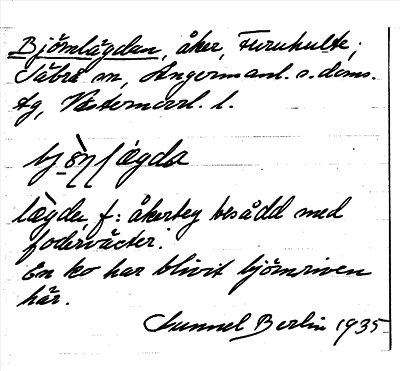 Björnlägdan, åker, Furuhulte;
Säbrå sn, Ångermanl. s. doms.
tg, Västernorrl. l.
lägde f: åkerteg besådd med
foderväxter.
En ko har blivit björnriven
här.
Gunnel Berlin 1935